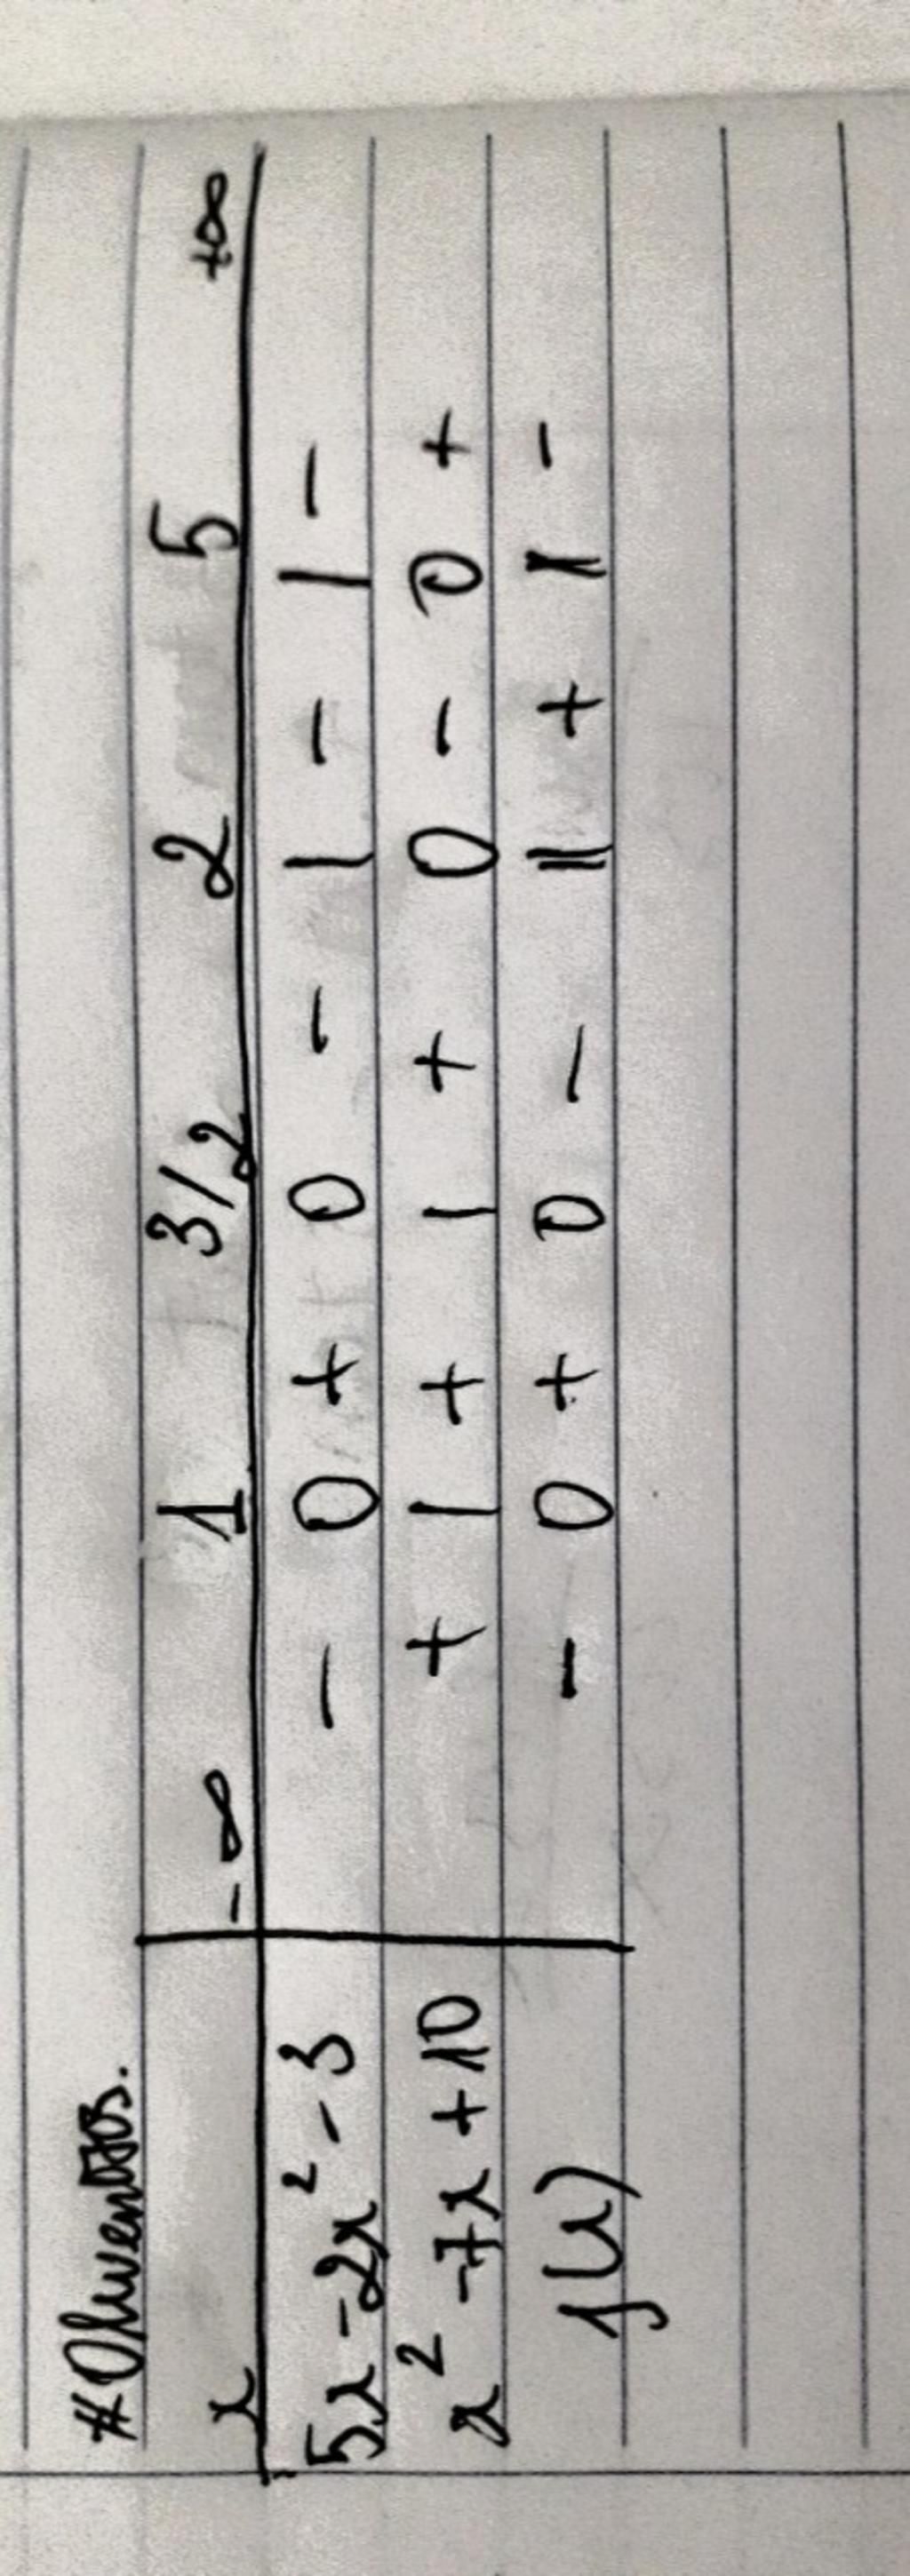 #Oluwen
x -∞ 1 3/2 2 5 +∞
5x-2x²-3 - 0 + 0 - | - | -
x²-7x+10 + | + | + 0 - 0 +
f(x) - 0 + 0 - || + || -